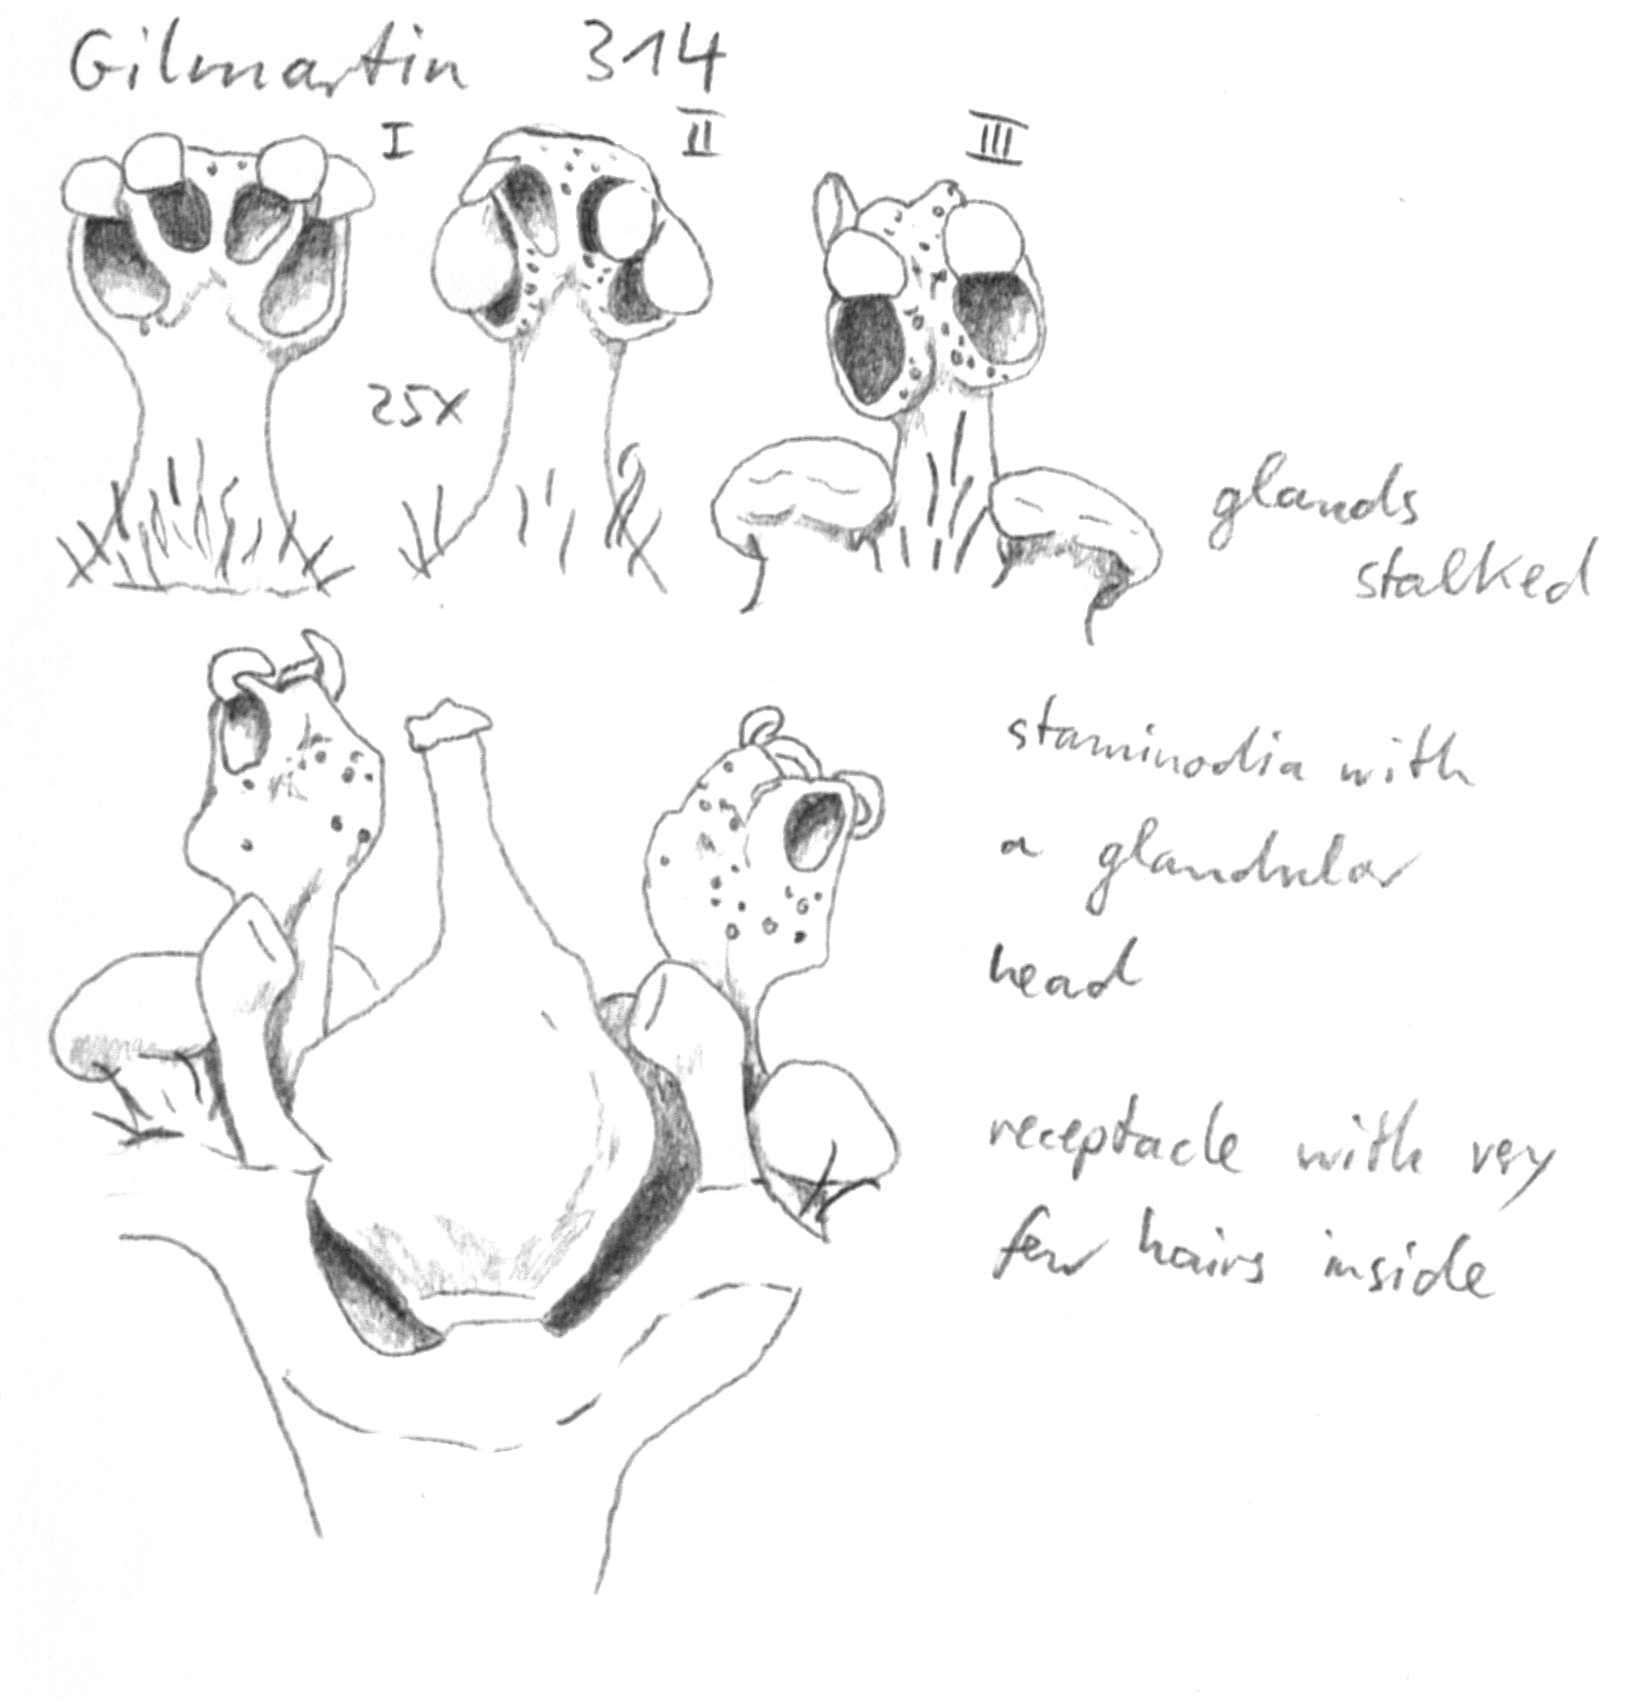 Gilmartin 314
I II III
25x
glands
stalked
staminodia with
a glandular
head
receptacle with very
few hairs inside